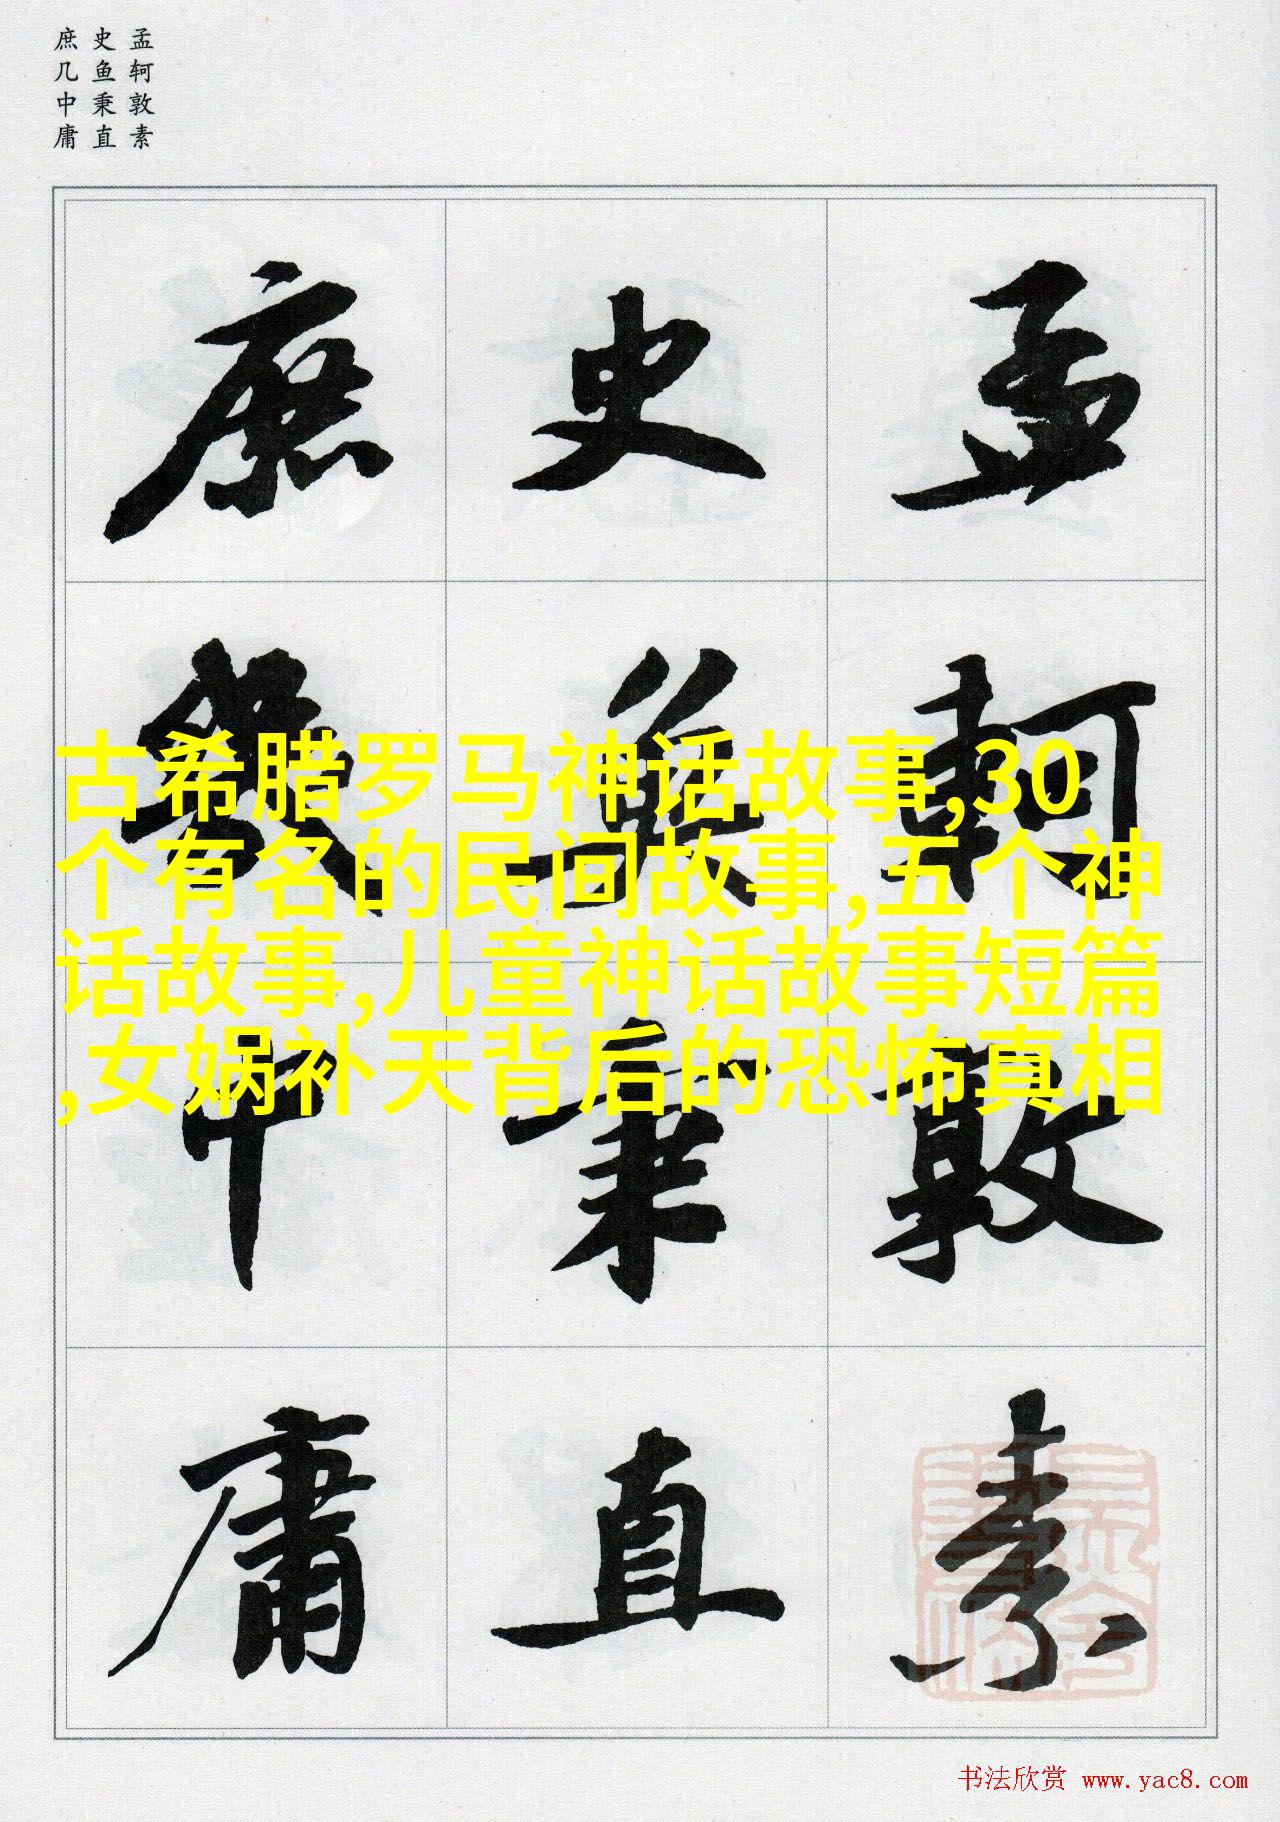 孟轲敦素
史鱼秉直
庶几中庸
孟軻敦素
史魚秉直
庶幾中庸
古希腊罗马神话故事,30
个有名的民间故事,五个神
话故事,儿童神话故事短篇
,女娲补天背后的恐怖真相
书法欣赏 www.yac8.com